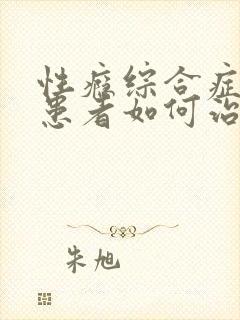 性瘾综合症
患者如何治
朱旭